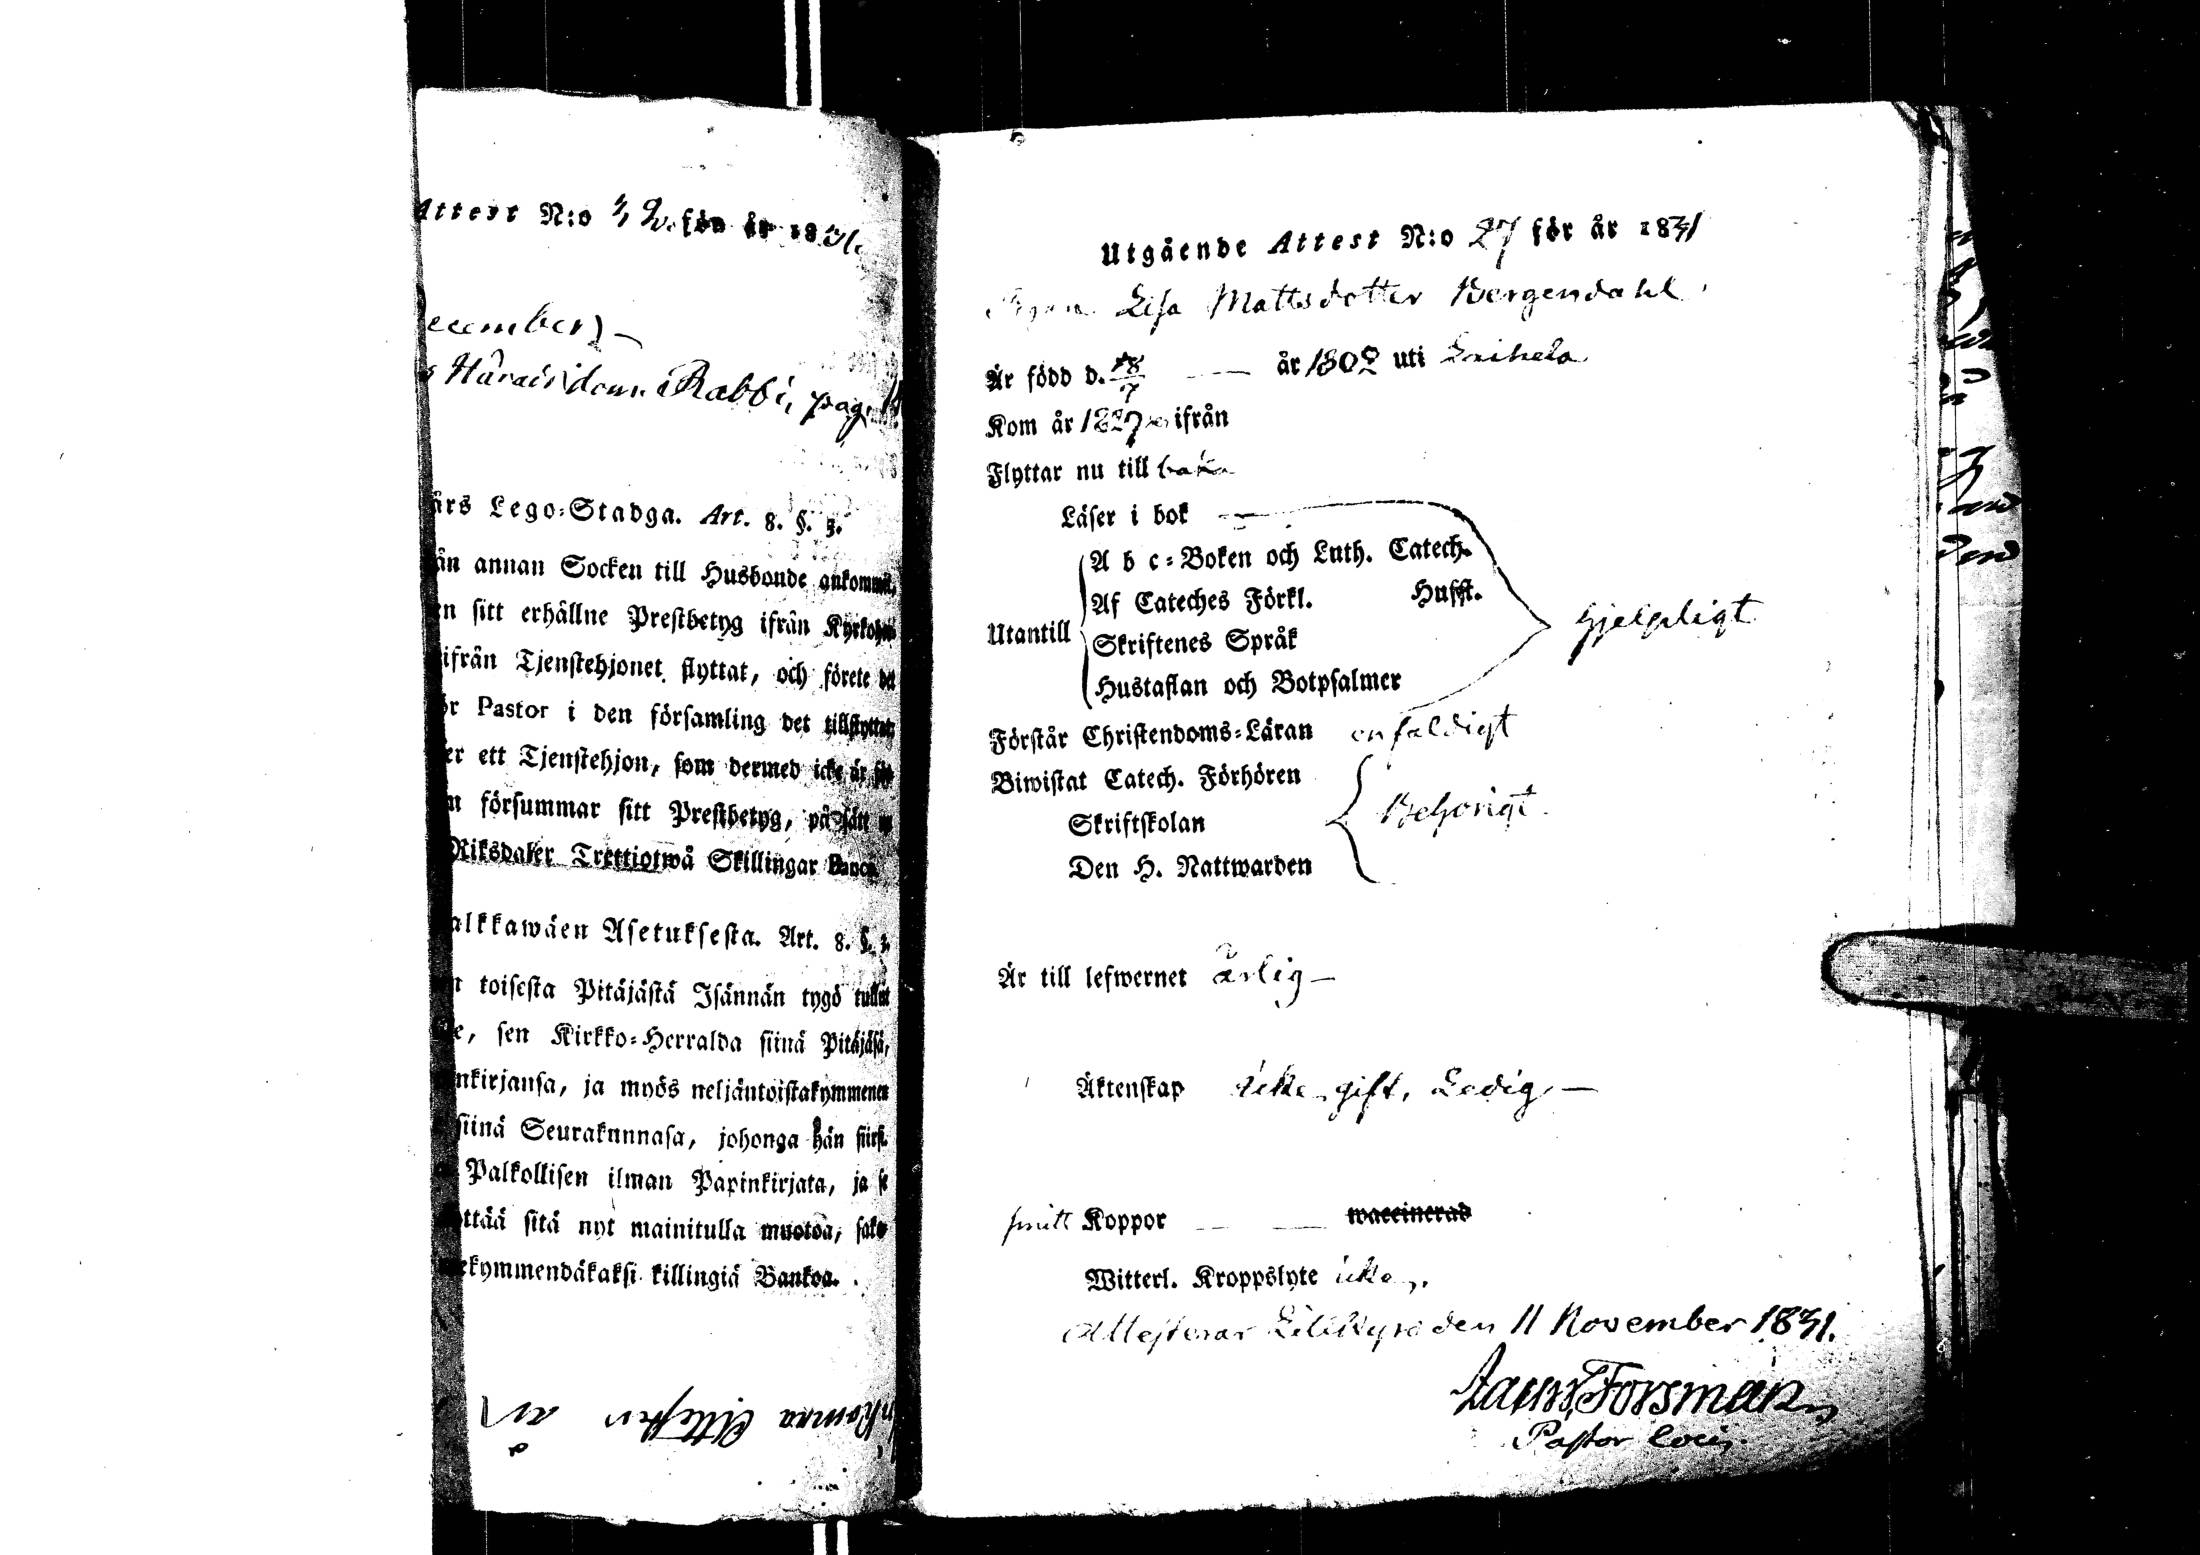 Attest N:o för år 18
ecember
Rabbi, pag.
års Lego-Stadga. Art. 8. §. 3.
ån annan Socken till Husbonde ankommit,
en sitt erhållne Prestbetyg ifrån
ifrån Tjenstehjonet flyttat, och förete det
ör Pastor i den församling det tillflyttat;
er ett Tjenstehjon, som dermed icke är
m försummar sitt Prestbetyg, på sätt
Riksdaler Trettiotwå Skillingar Banco
alkkawäen Asetuksesta. Art. 8. §. 3.
toisesta Pitäjästä Isännän tygö tullut
e, sen Kirkko-Herralda siinä Pitäjäsä,
nkirjansa, ja myös neljäntoistakymmenen
siinä Seurakunnasa, johonga hän siirt.
Palkollisen ilman Papinkirjata, ja se
ttää sitä nyt mainitulla muotoa, sako
ekymmendäkaksi killingiä Bankoa.
Utgående Attest N:o 27 för år 1831
Pigan Lisa Mattsdotter Bergendahl
Är född d. 18/7 år 1802 uti Laihela
Kom år 1827 ifrån
Flyttar nu till baka
Läser i bok
A b c-Boken och Luth. Catech.
Af Cateches Förkl. Husfl.
Utantill
Skriftenes Språk
Hustaflan och Botpsalmer
hjelpligt
Förstår Christendoms-Läran enfaldigt
Biwistat Catech. Förhören
Skriftskolan
Behörigt.
Den H. Nattwarden
Är till lefwernet ärlig
Äktenskap icke gift, Ledig
haft Koppor waccinerad
Witterl. Kroppslyte icke
Attesterar Lillkyro den 11 November 1831.
Forsman
Pastor loci